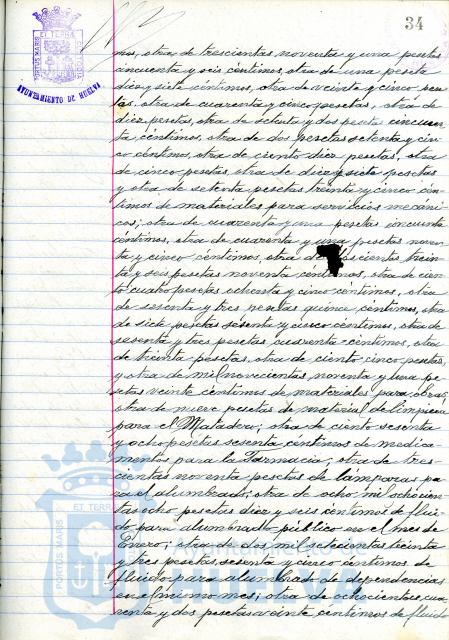 34
PORTUS MARIS ET TERRÆ CUSTODIA
AYUNTAMIENTO DE HUELVA
mos, otra de trescientas noventa y una pesetas
cincuenta y seis céntimos, otra de una peseta
diez y siete céntimos, otra de veinte y cinco pese
tas, otra de cuarenta y cinco pesetas, otra de
diez pesetas, otra de ochenta y dos pesetas cincuen
ta céntimos, otra de dos pesetas setenta y cin
co céntimos, otra de ciento diez pesetas, otra
de cinco pesetas otra de diez y siete pesetas
y otra de setenta pesetas treinta y cinco cén
timos de materiales para servicios mecáni
cos; otra de cuarenta y una pesetas cincuenta
céntimos, otra de cuarenta y una pesetas noven
ta y cinco céntimos, otra de trein
ta y seis pesetas noventa céntimos, otra de cien
to cuatro pesetas ochenta y cinco céntimos, otra
de sesenta y tres pesetas quince céntimos, otra
de siete pesetas sesenta y cinco céntimos, otra de
sesenta y tres pesetas cuarenta céntimos, otra
de treinta pesetas, otra de ciento cinco pesetas,
y otra de mil novecientas noventa y una pe
setas veinte céntimos de materiales para obras;
otra de nueve pesetas de material de limpieza
para el Matadero; otra de ciento sesenta
y ocho pesetas sesenta céntimos de medica-
mentos para la Farmacia; otra de tres-
cientas noventa pesetas de lámparas pa
ra el alumbrado; otra de ocho mil ochocien
tas ocho pesetas diez y seis céntimos de flúi
do para alumbrado público en el mes de
Enero; otra de dos mil seiscientas treinta
y tres pesetas sesenta y cinco céntimos de
flúido para alumbrado de dependencias
en el mismo mes; otra de ochocientas cua
renta y dos pesetas veinte céntimos de flúido
PORTUS MARIS ET TERRÆ
Ayuntamiento de